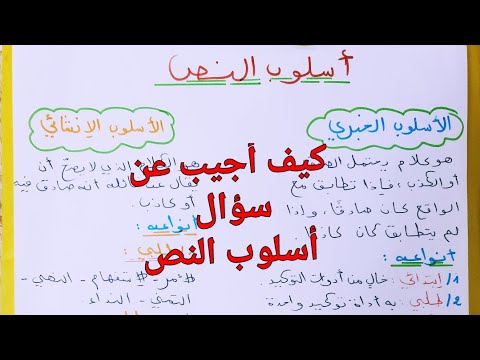 أسلوب النص
الأسلوب الخبري
هو كلام يحتمل
أو الكذب، فإذا تطابق مع
الواقع كان صادقًا، وإذا
لم يتطابق كان كاذبًا
أنواعه :
1/ إبتدائي : خالي من أدوات التوكيد
2/ طلبي : به أداة توكيد واحدة
الأسلوب الإنشائي
الذي لا يصح أن
يقال أنه صادق فيه
أو كاذب.
أنواعه :
# أمر - # ستفهام - النهي -
التمني - النداء.
كيف أجيب عن
سؤال
أسلوب النص